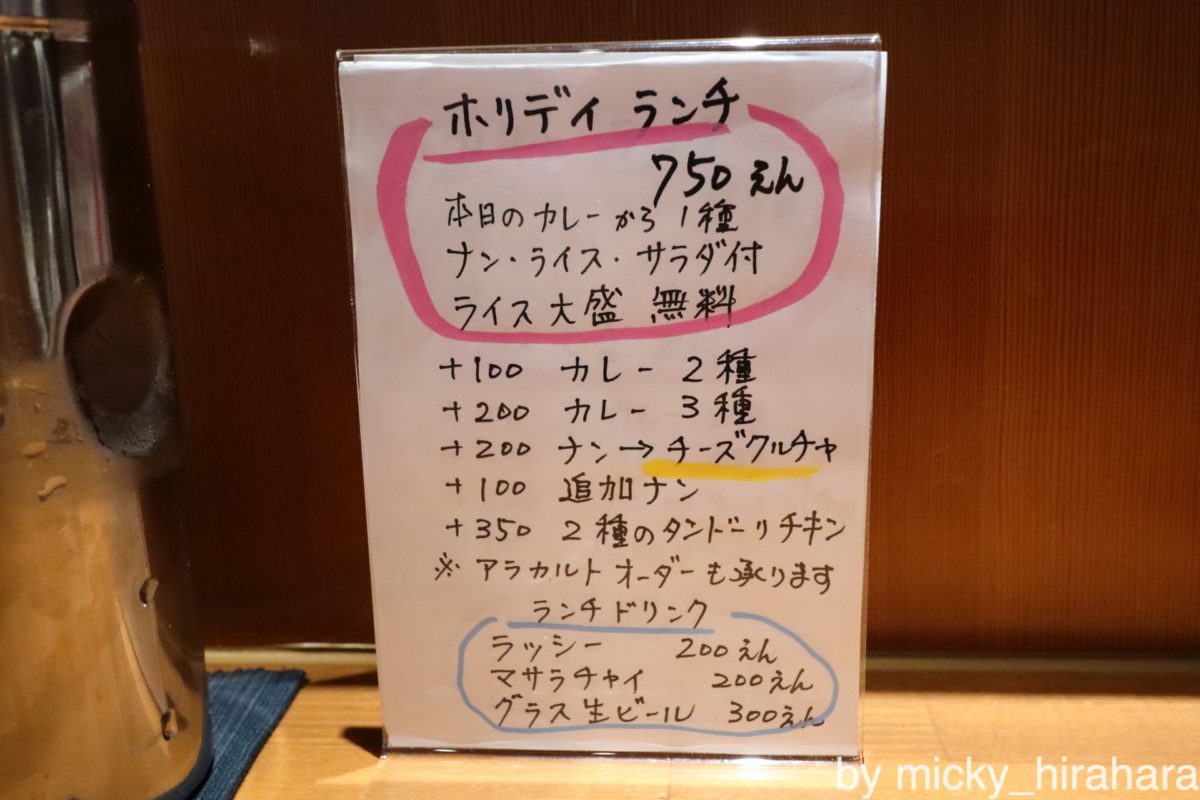 ホリデイ ランチ
750えん
本日のカレーから1種
ナン・ライス・サラダ付
ライス大盛 無料
+100 カレー 2種
+200 カレー 3種
+200 ナン→チーズクルチャ
+100 追加ナン
+350 2種のタンドーリチキン
※アラカルトオーダーも承ります
ランチドリンク
ラッシー 200えん
マサラチャイ 200えん
グラス生ビール 300えん
by micky_hirahara